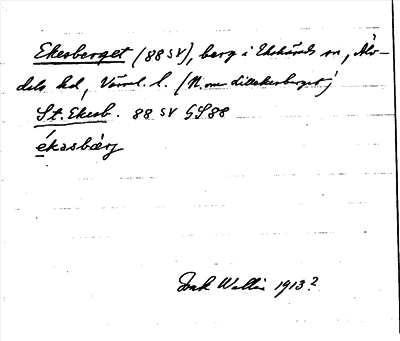 Ekesberget (88 SV), berg i Ekshärads sn, Älv-
dals hd, Värml. l. (N. om Lillekesberget)
St. Ekesb. 88 SV GS88
ékasbærj
Wallin 1913?